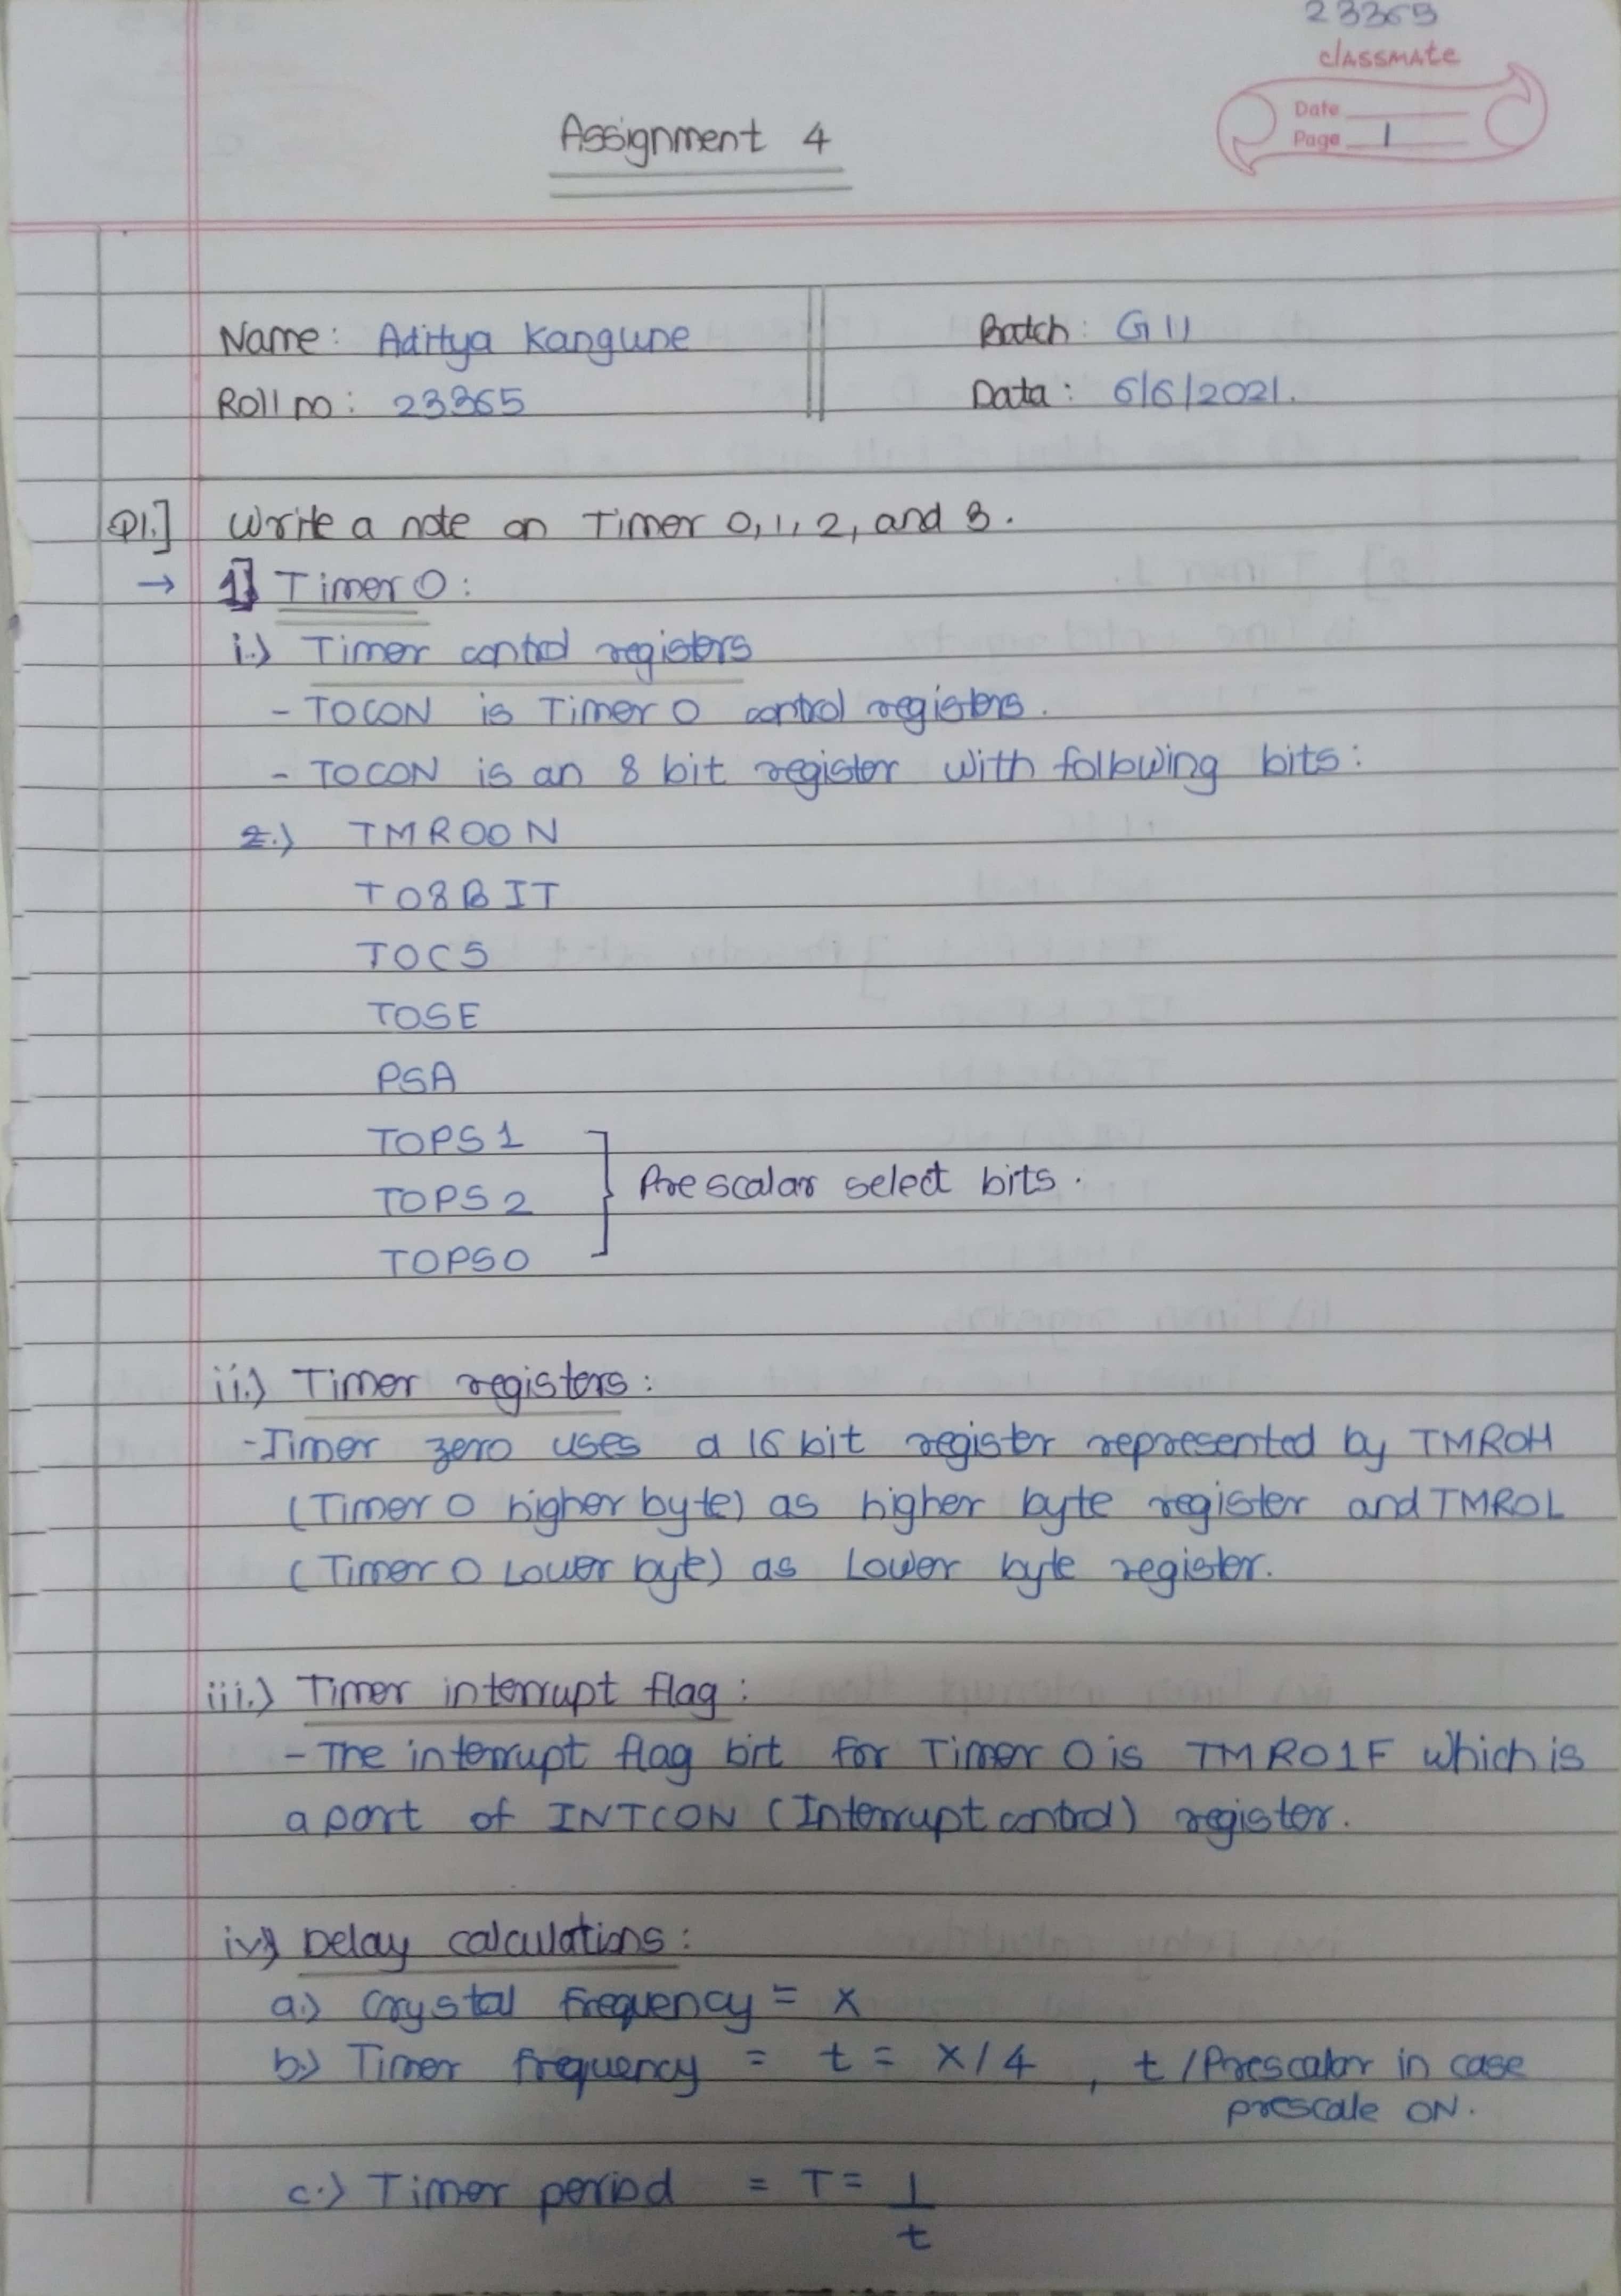 23365
classmate
Date
Page 1
Assignment 4
Name: Aditya Kangune
Batch: G11
Roll no: 23365
Data: 6/6/2021.
Q1.] Write a note on Timer 0, 1, 2, and 3.
→ 1] Timer 0:
i.) Timer control registers
- TOCON is Timer 0 control registers.
- TOCON is an 8 bit register with following bits:
2.) TMROON
TO8BIT
TOCS
TOSE
PSA
TOPS1
TOPS2
TOPS0
Prescalar select bits.
ii.) Timer registers:
- Timer zero uses a 16 bit register represented by TMROH
(Timer 0 higher byte) as higher byte register and TMROL
(Timer 0 Lower byte) as Lower byte register.
iii.) Timer interrupt flag:
- The interrupt flag bit for Timer 0 is TMRO1F which is
a part of INTCON (Interrupt control) register.
iv) Delay calculations:
a.) Crystal frequency = x
b.) Timer frequency = t = x/4 , t/Prescalar in case
prescale ON.
c.) Timer period = T = 1
t